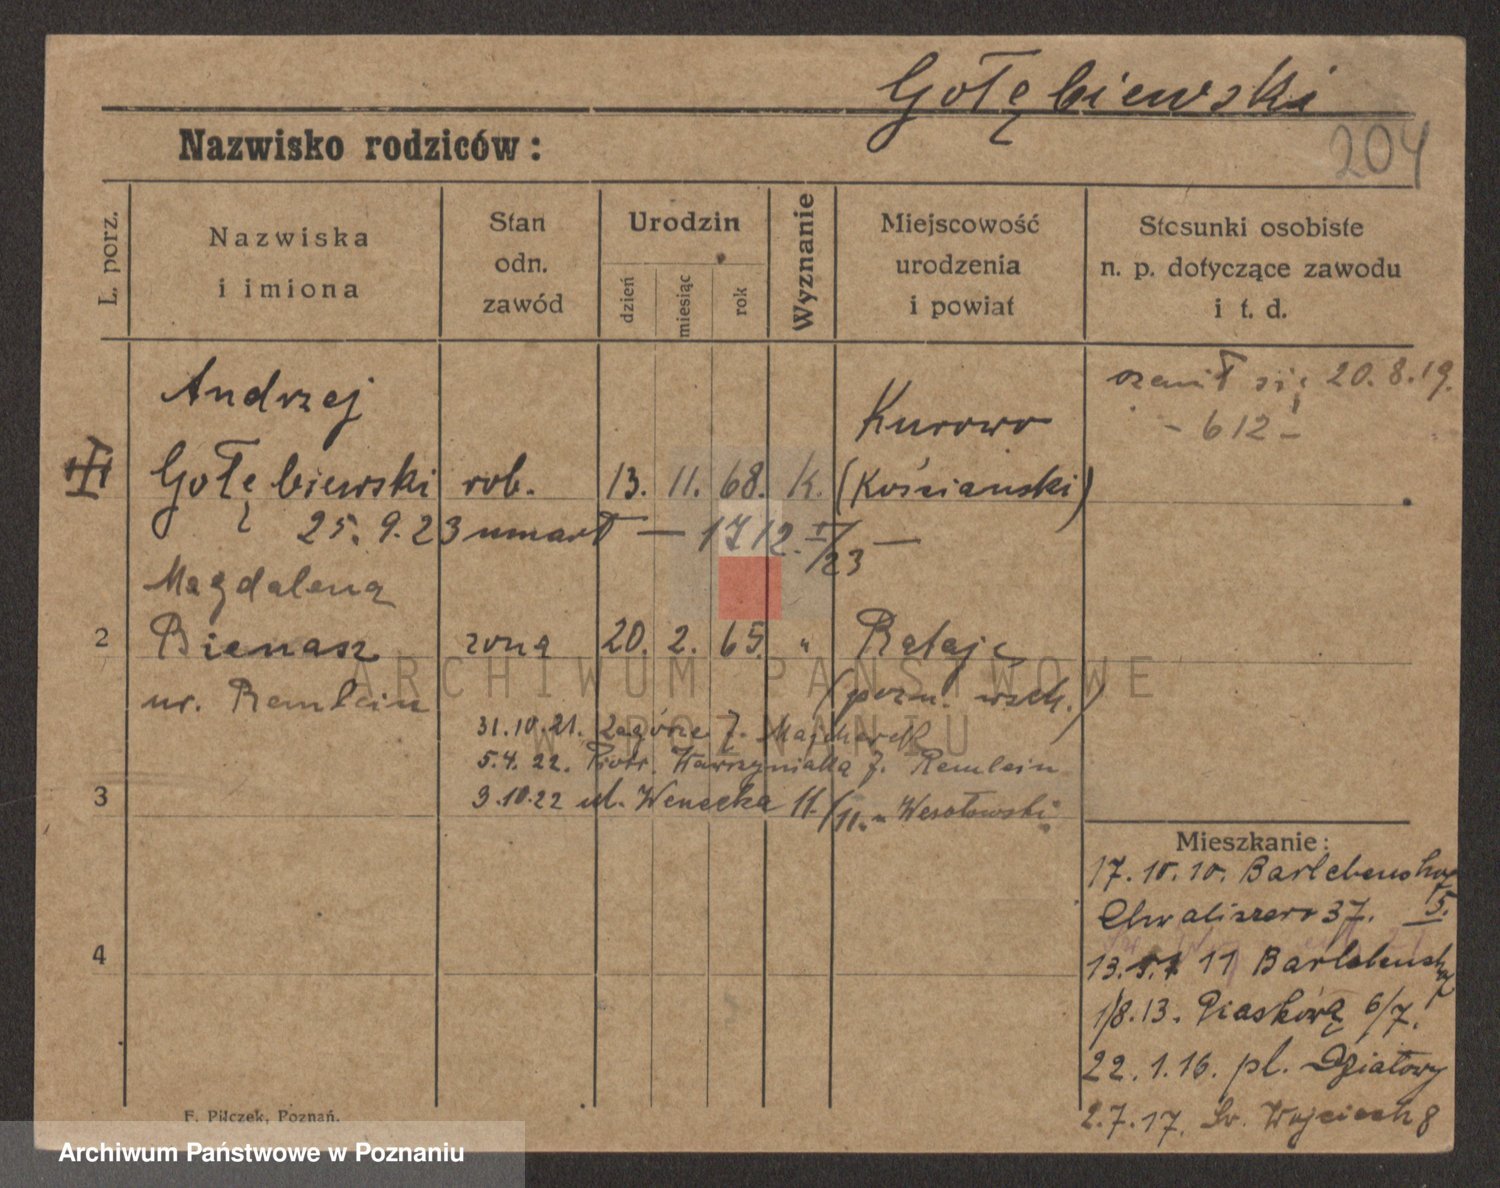 Gołębiewski
204
Nazwisko rodziców:
L. porz.
Nazwiska
i imiona
Stan
odn.
zawód
Urodzin
dzień
miesiąc
rok
Wyznanie
Miejscowość
urodzenia
i powiat
Stosunki osobiste
n. p. dotyczące zawodu
i t. d.
Andrzej
Gołębiewski rob. 13. 11. 68. K.
Kurowo
(Kościanski)
ożenił się 20.8.19.
- 612 -
25. 9. 23 umarł — 1712. /23 —
Magdalena
2 Bienasz żona 20. 2. 65. " Rataje
ur. Remlein
(pozn. wsch.)
31.10.21. Zagórze 7. Majcherek
5.4.22. Piotr. Wawrzyniaka 7. Remlein
3
9.10.22 ul. Wenecka 11./11. - Wesołowski
Mieszkanie:
17. 10. 10. Barlebens
Chwaliszewo 37. 5.
4
13. 11 Barlebensh
1/8.13. Piaskową 6/7.
22. 1. 16. pl. Działowy
2.7.17. Św. Wojciech 8
F. Pilczek, Poznań.
ARCHIWUM PAŃSTWOWE
W POZNANIU
Archiwum Państwowe w Poznaniu